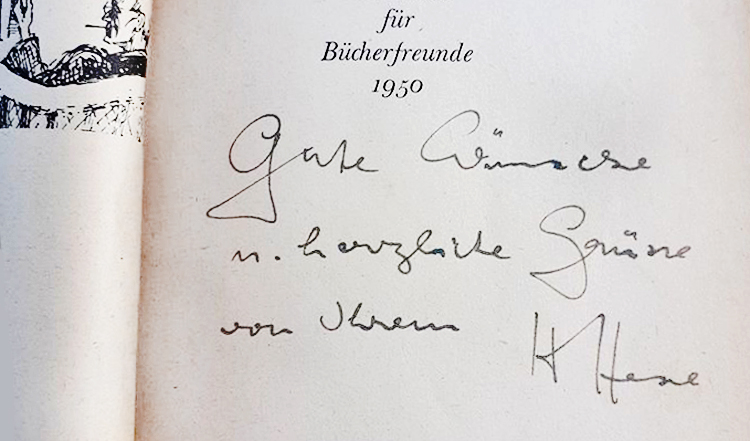 für
Bücherfreunde
1950
Gute Wünsche
u. herzliche Grüsse
von Ihrem H Hesse